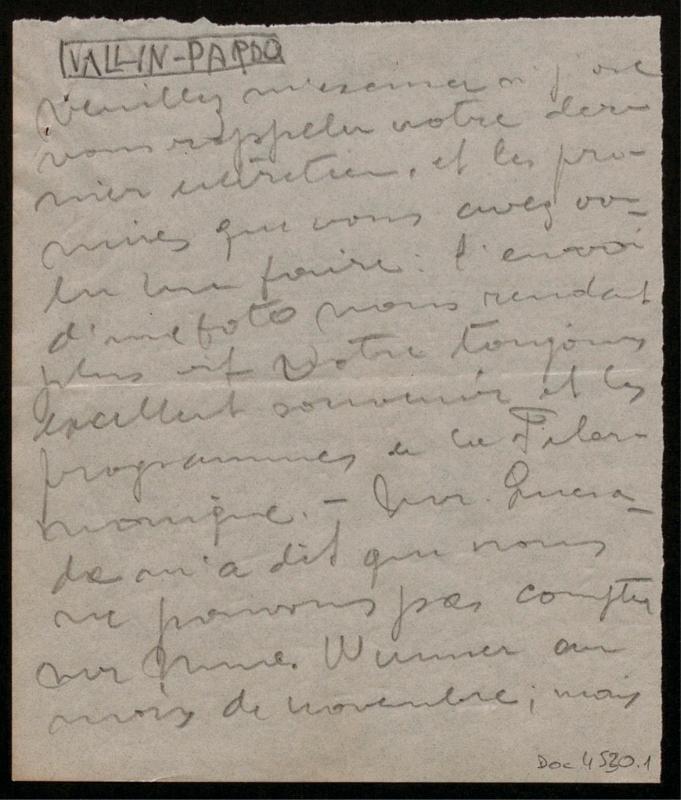 VALLIN-PARDO
Veuillez m'excuser si j'ose
vous rappeler notre der-
nier entretien, et les pro-
mises que vous avez vou-
lu me faire: l'envoi
d'une foto nous rendant
plus vif votre toujours
excellent souvenir et les
programmes de la Filar-
monique. – Mr. Quesa-
da m'a dit que nous
ne pouvons pas compter
sur Mme. Wumser au
mois de novembre; mais
Doc 4530.1